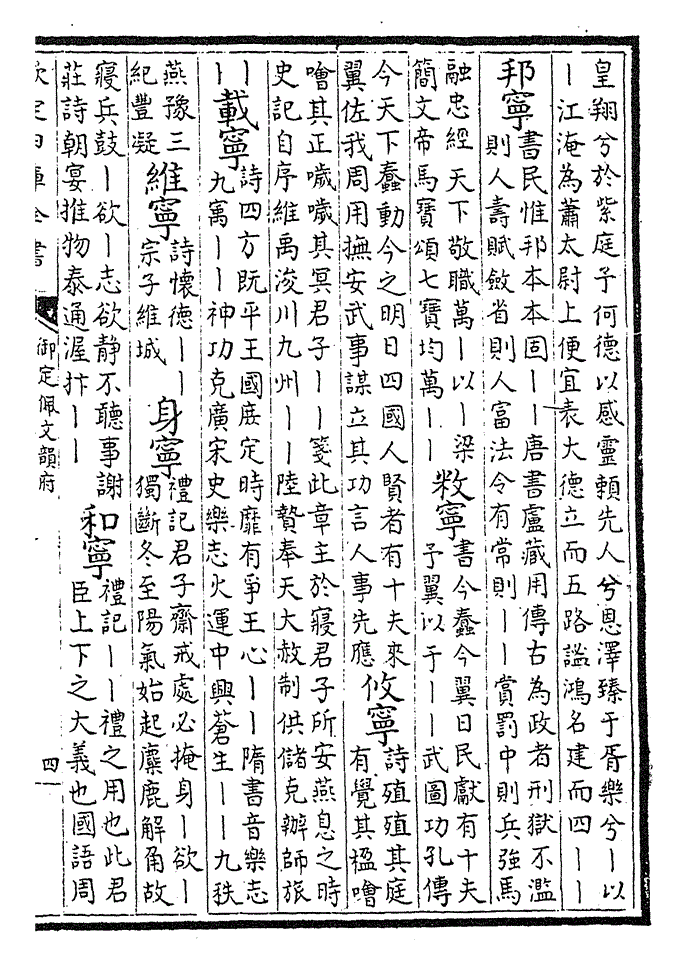 皇翔兮於紫庭子何德以感靈賴先人兮恩澤臻于胥樂兮丨以
丨江淹為蕭太尉上便宜表大德立而五路謐鴻名建而四丨丨
邦寧
書民惟邦本本固丨丨唐書盧藏用傳古為政者刑獄不濫
則人壽賦斂省則人富法令有常則丨丨賞罰中則兵強馬
融忠經天下敬職萬丨以丨梁
簡文帝馬寶頌七寶均萬丨丨
敉寧
書今蠢今翼日民獻有十夫
予翼以于丨丨武圖功孔傳
今天下蠢動今之明日四國人賢者有十夫來
翼佐我周用撫安武事謀立其功言人事先應
攸寧
詩殖殖其庭
有覺其楹噲
噲其正噦噦其冥君子丨丨箋此章主於寢君子所安燕息之時
史記自序維禹浚川九州丨丨陸贄奉天大赦制供儲克辦師旅
丨
丨
載寧
詩四方既平王國庶定時靡有爭王心丨丨隋書音樂志
九㝢丨丨神功克廣宋史樂志火運中興蒼生丨丨九秩
燕豫三
紀豐凝
維寧
詩懷德丨丨
宗子維城
身寧
禮記君子齋戒處必掩身丨欲丨
獨斷冬至陽氣始起麋鹿解角故
寢兵鼓丨欲丨志欲静不聽事謝
莊詩朝宴推物泰通渥抃丨丨
和寧
禮記丨丨禮之用也此君
臣上下之大義也國語周
欽定四庫全書
御定佩文韻府
四